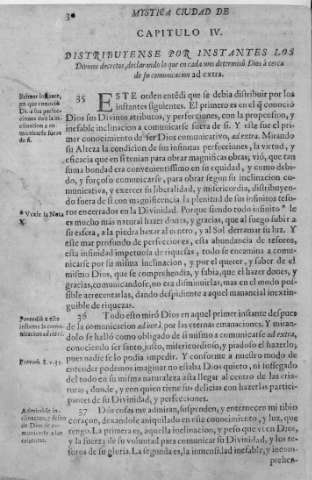 MYSTICA CIUDAD DE
CAPITULO IV.
DISTRIBUYENSE POR INSTANTES LOS
Divinos decretos, declarando lo que en cada uno determinò Dios à cerca
de su comunicacion ad extra.
35 ESTE orden entẽdi que se debia distribuir por los
instantes siguientes. El primero es en el q̃ conociò
Dios sus Divinos atributos, y perfecciones, con la propension, y
inefable inclinacion a comunicarse fuera de sì. Y este fue el primer
conocimiento de ser Dios comunicativo, ad extra. Mirando
su Alteza la condicion de sus infinitas perfecciones, la virtud, y
eficacia que en si tenian para obrar magnificas obras, viò, que tan
suma bondad era convenientissimo en su equidad, y como debido,
y forçoso comunicarse, para obrar segun su inclinacion comunicativa,
y exercer su liberalidad, y misericordia, distribuyendo
fuera de si con magnificencia la plenitud de sus infinitos tesoros
encerrados en la Divinidad. Porque siendo todo infinito * le
es mucho mas natural hazer dones, y gracias, que al fuego subir a
su esfera, a la piedra baxar al centro, y al Sol derramar su luz. Y
este mar profundo de perfecciones, esta abundancia de tesoros,
esta infinidad impetuosa de riquezas, todo se encamina a comunicarse
por su misma inclinacion, y por el querer, y saber de el
mismo Dios, que se comprehendia, y sabia, que el hazer dones, y
gracias, comunicandose, no era disminuirlas, mas en el modo possible
acrecentarlas, dando despidiente a aquel manancial inextinguible
de riquezas.
36 Todo esto mirò Dios en aquel primer instante despues
de la comunicacion ad intrà, por las eternas emanaciones. Y mirandolo
se hallò como obligado de si mismo a comunicarse ad extra,
conociendo ser santo, justo, misericordioso, y piadoso el hazerlo,
pues nadie se lo podia impedir. Y conforme a nuestro modo de
entender podemos imaginar no estaba Dios quieto, ni sossegado
del todo en su misma naturaleza asta llegar al centro de las criaturas,
donde, y con quien tiene sus delicias con hazerlas participantes
de su Divinidad, y perfecciones.
37 Dos cosas me admiran, suspenden, y enternecen mi tibio
coraçon, dexandole aniquilado en este conocimiento, y luz, que
tengo. La primera es, aquella inclinacion, y peso que vì en Dios,
y la fuerza de su voluntad para comunicar su Divinidad, y los tesoros
de su gloria. La segunda es, la inmensidad inefable, y incomprehen-
* Vease la Nota
X.
Proverb. 8. v. 31.